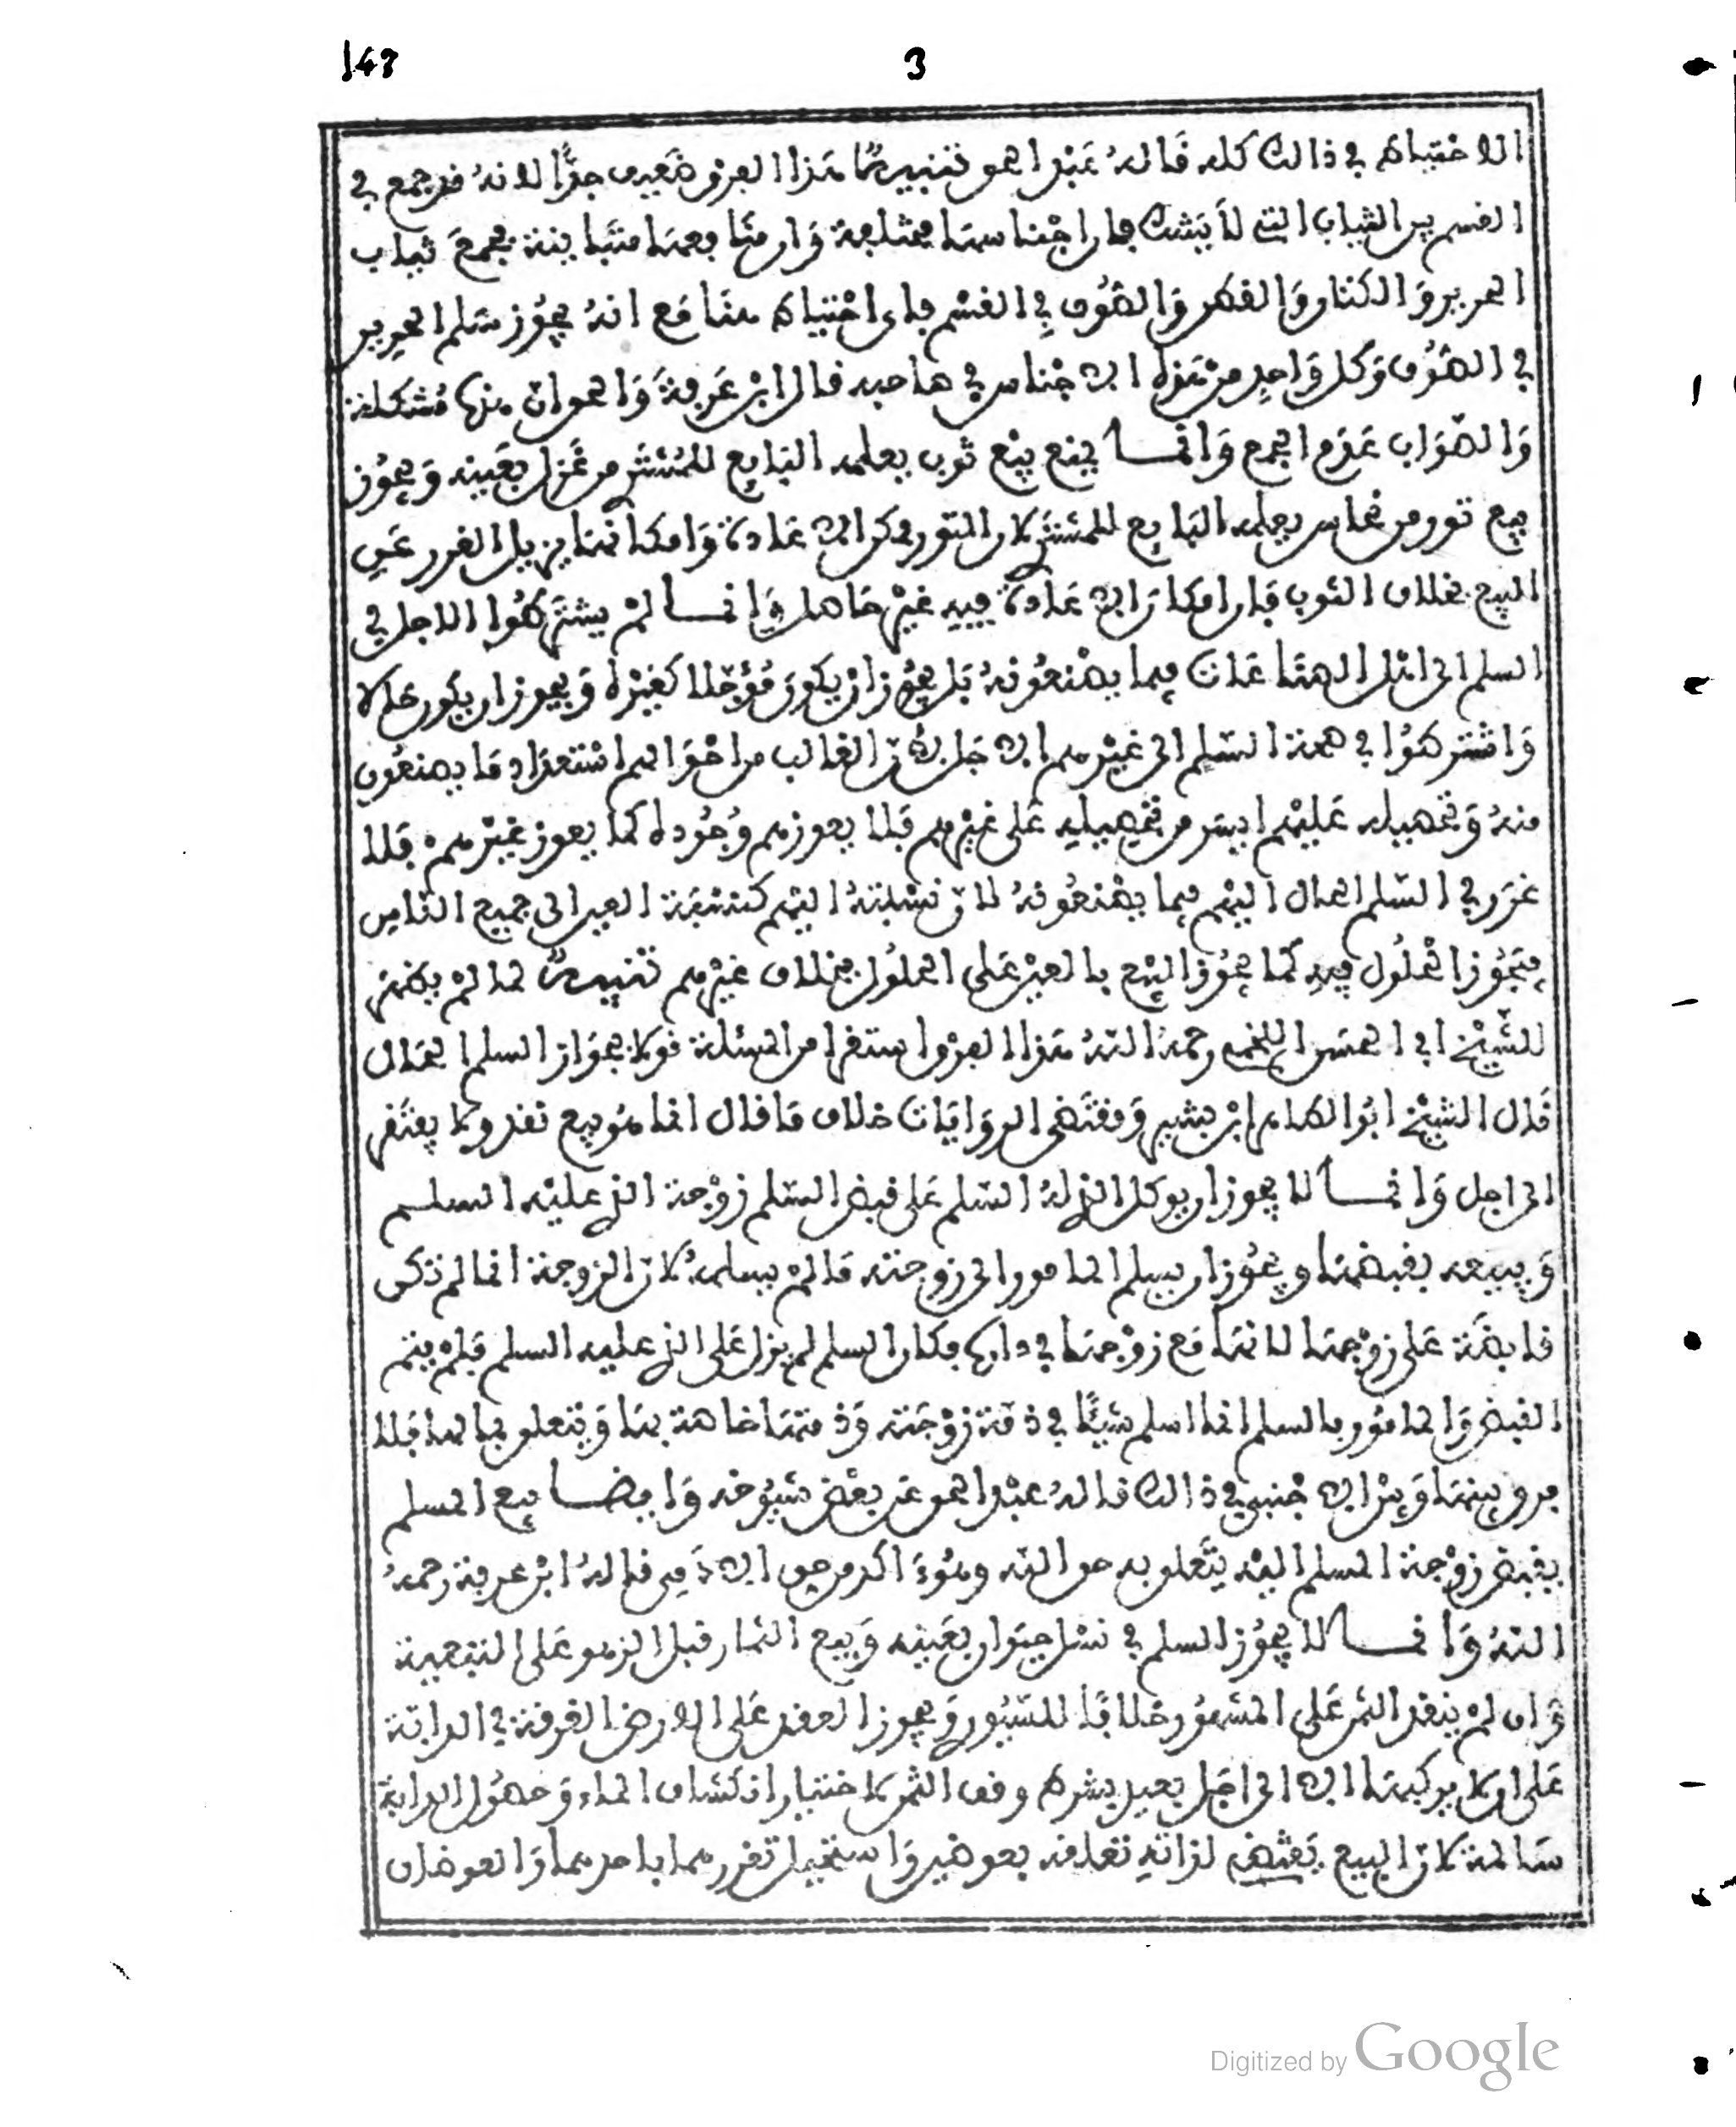 148 3
الاحتياط في ذالك كله قاله عبد الحق تنبيه هذا الفرق ضعيف جدا لانه قد جمع في
القسم بين الثياب التي لا يشك فان اجناسها مختلفة وان منافعها متباينة فجمع ثياب
الحرير والكتان والقطن والصوف في القسم فاي احتياط هنا مع انه يجوز سلم الحرير
في الصوف وكل واحد من هذه الاجناس في صاحبه قال ابن عرفة والجواب منها مشكلة
والصواب عدم الجمع وانما يمنع بيع ثوب يعمله البايع للمشتري من غزل بعينه ويجوز
بيع تور من نحاس يعمله البايع للمشتري لان التور فكر الاعادة وامكانها يزيل الغرر عن
البيع بخلاف الثوب فان امكان الاعادة فيه غير حاصل وانما لم يشترطوا الاجل في
السلم الى اهل الصناعات فيما يصنعونه بل يجوز ان يكون مؤجلا كغيره ويجوز ان يكون حالا
واشترطوا في صحة السلم الى غيرهم الاجل لان الغالب من احوالهم استعداد ما يصنعون
منه وتحصيله عليهم ايسر من تحصيله على غيرهم فلا يعوزهم وجوده كما يعوز غيرهم فلا
غرر في السلم الحال اليهم فيما يصنعونه لان نسبته اليهم كنسبة العين الى جميع الناس
فيجوز الحلول فيه كما يجوز البيع بالعين على الحلول بخلاف غيرهم تنبيه لما لم يظهر
للشيخ ابي الحسن اللخمي رحمه الله هذا الفرق استقرا من المسئلة قولا بجواز السلم الحال
قال الشيخ ابو الطاهر ابن بشير ومقتضى الروايات خلاف ما قال انما هو بيع نقد ولا يفتقر
الى اجل وانما لا يجوز ان يوكل الذي له السلم على قبض السلم زوجة الذي عليه السلم
وبيعه بقبضها ويجوز ان يسلم المامور الى زوجته ما لم يسلمه لان الزوجة انما لم تكن
قابضة على زوجها لانها مع زوجها في دارها فكان السلم لم يزل على الذي عليه السلم فلم يتم
القبض والمامور بالسلم انما اسلم شيئا في ذمة زوجته وذمتها خاصة بها ويتعلق بمالها فلا
فرق بينها وبين الاجنبي في ذالك قاله عبد الحق عن بعض شيوخه وايضا بيع المسلم
بقبض زوجة المسلم اليه يتعلق به حق الله وهو اكد من حق الادمي قاله ابن عرفة رحمه
الله وانما لا يجوز السلم في نسل حيوان بعينه وبيع الثمار قبل الزهو على التبقية
وان لم ينقد الثمن على المشهور خلافا للسيوري ويجوز العقد على الارض الغرقة في الدابة
على ان لا يركبها الا الى اجل بعيد بشرط وقف الثمن لاختبار انكشاف الماء وحصول الدابة
سالمة لان البيع يقتضي لذاته تعلقه بعوضين واستحيل تقررهما باحدهما والعوضان